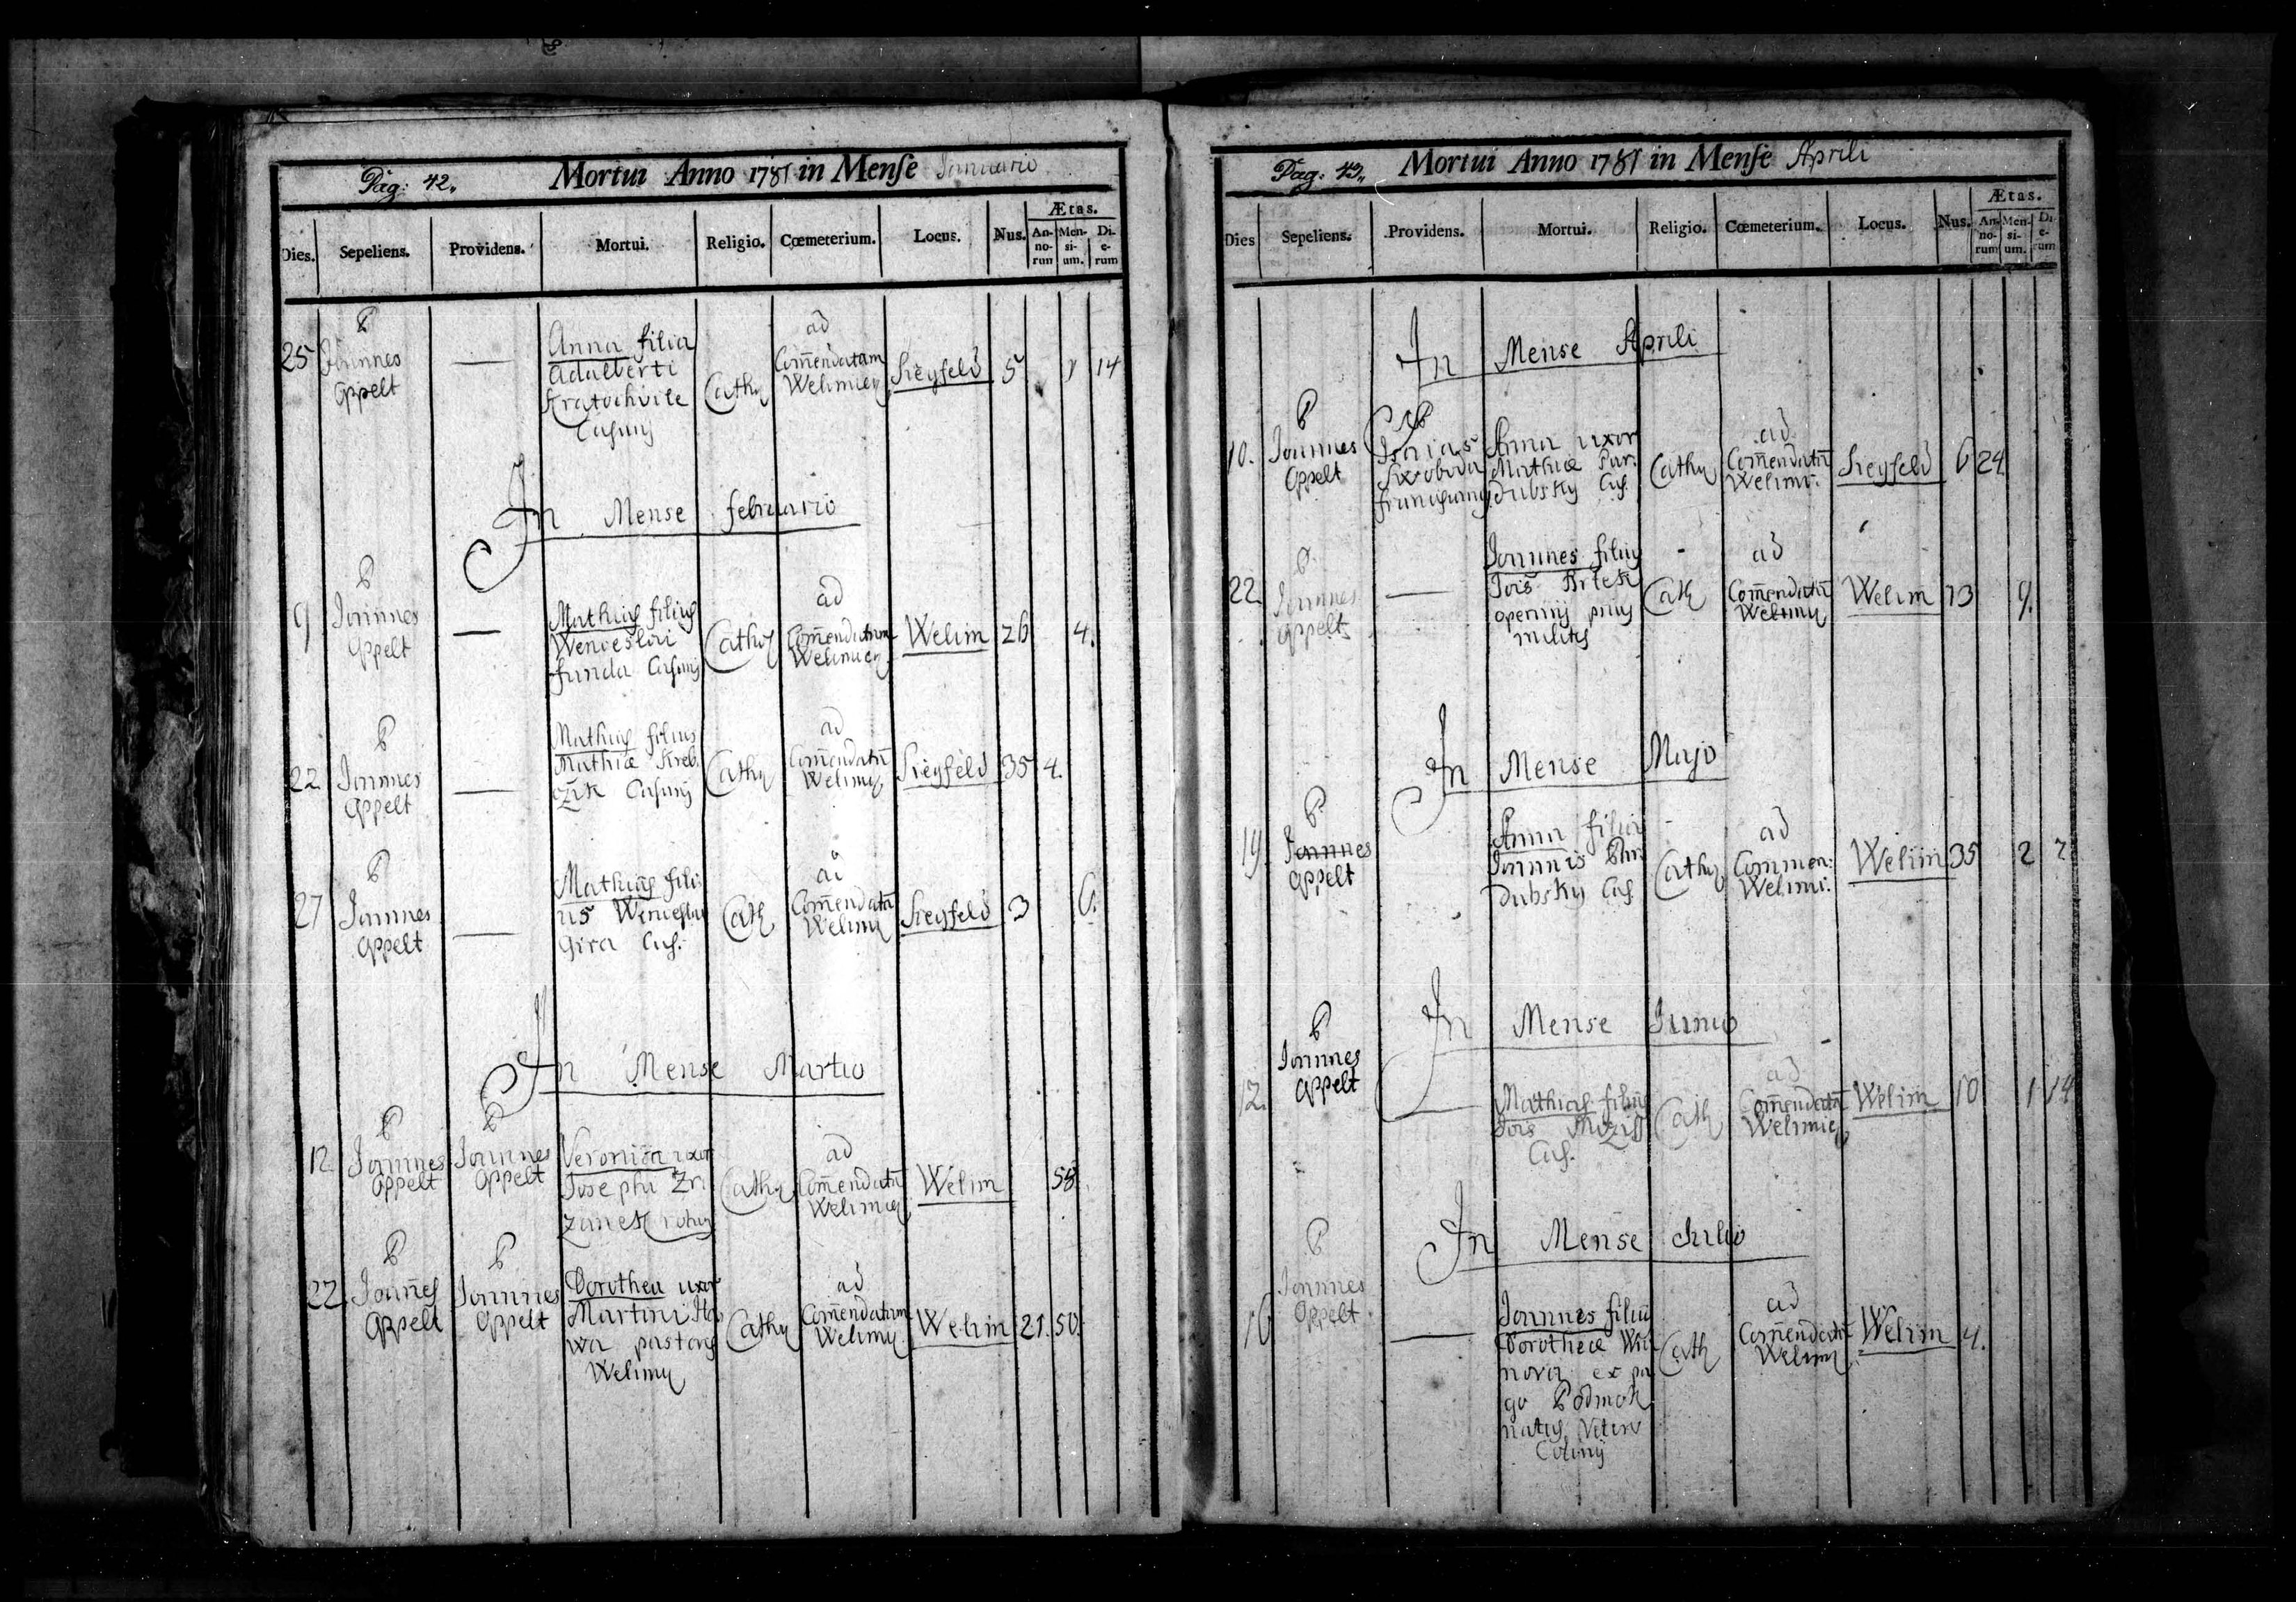 Pag: 42.
Mortui Anno 1781 in Mense Januario
Dies. Sepeliens. Providens. Mortui. Religio. Cœmeterium. Locus. Nus. Ætas.
An-no-rum Men-si-um. Di-e-rum
25 P Joannes Appelt — Anna filia
Adalberti
Kratochvile
Casuny
Cathy ad Com̄endatam Welimien Sieyfeld 5 1 14
In Mense februario
9 P Joannes Appelt — Mathias filius
Wenceslai
funda Casuny
Cathy ad Com̄endatam Welimien Welim 26 4.
22 P Joannes Appelt — Mathias filius
Mathiæ Kreb
czik Casuny
Cathy ad Com̄endatm̄ Welimy Sieyfeld 35 4.
27 P Joannes Appelt — Mathias fili
us Wenceslai
Gira Cas.
Cath ad Com̄endatm̄ Welimy Sieyfeld 3 6.
In Mense Martio
12. P Joannes Appelt P Joannes Appelt Veronica uxor
Josephi
Cathy ad Com̄endatm̄ Welimien Welim 58.
22. P Joan̄es Appelt P Joannes Appelt Dorothea uxor
Martini
wa pastorys
Welimy
Cathy ad Com̄endatam Welimy Welim 21. 50.
Pag. 43.
Mortui Anno 1781 in Mense Aprili
Dies Sepeliens. Providens. Mortui. Religio. Cœmeterium. Locus. Nus. Ætas.
An-no-rum Men-si-um. Di-e-rum
In Mense Aprili
10. P Joannes Appelt P Isaias Swoboda Anna uxor
Mathiæ Par
dubsky Cas.
Cathy ad Com̄endatm̄ Welimi. Sieyfeld 6 24.
22. P. Joannes Appelt — Joannes filius
Jois
militis
Cath ad Com̄endatm̄ Welimy Welim 13 9.
In Mense Majo
19. P. Joannes Appelt Anna filia
Joannis Par
dubsky Cas.
Cathy ad Commen: Welimi: Welim 35 2 7
In Mense Junio
12. P Joannes Appelt — Mathias filius
Jois
Cas.
Cath ad Com̄endatm̄ Welimien Welim 10 1 14
In Mense Julio
16 P Joannes Appelt — Joannes filius
Dorotheæ
nova ex pa
go Podmok
natus Vetero
Colinij
Cath ad Com̄endatm̄ Welimy Welim 4.